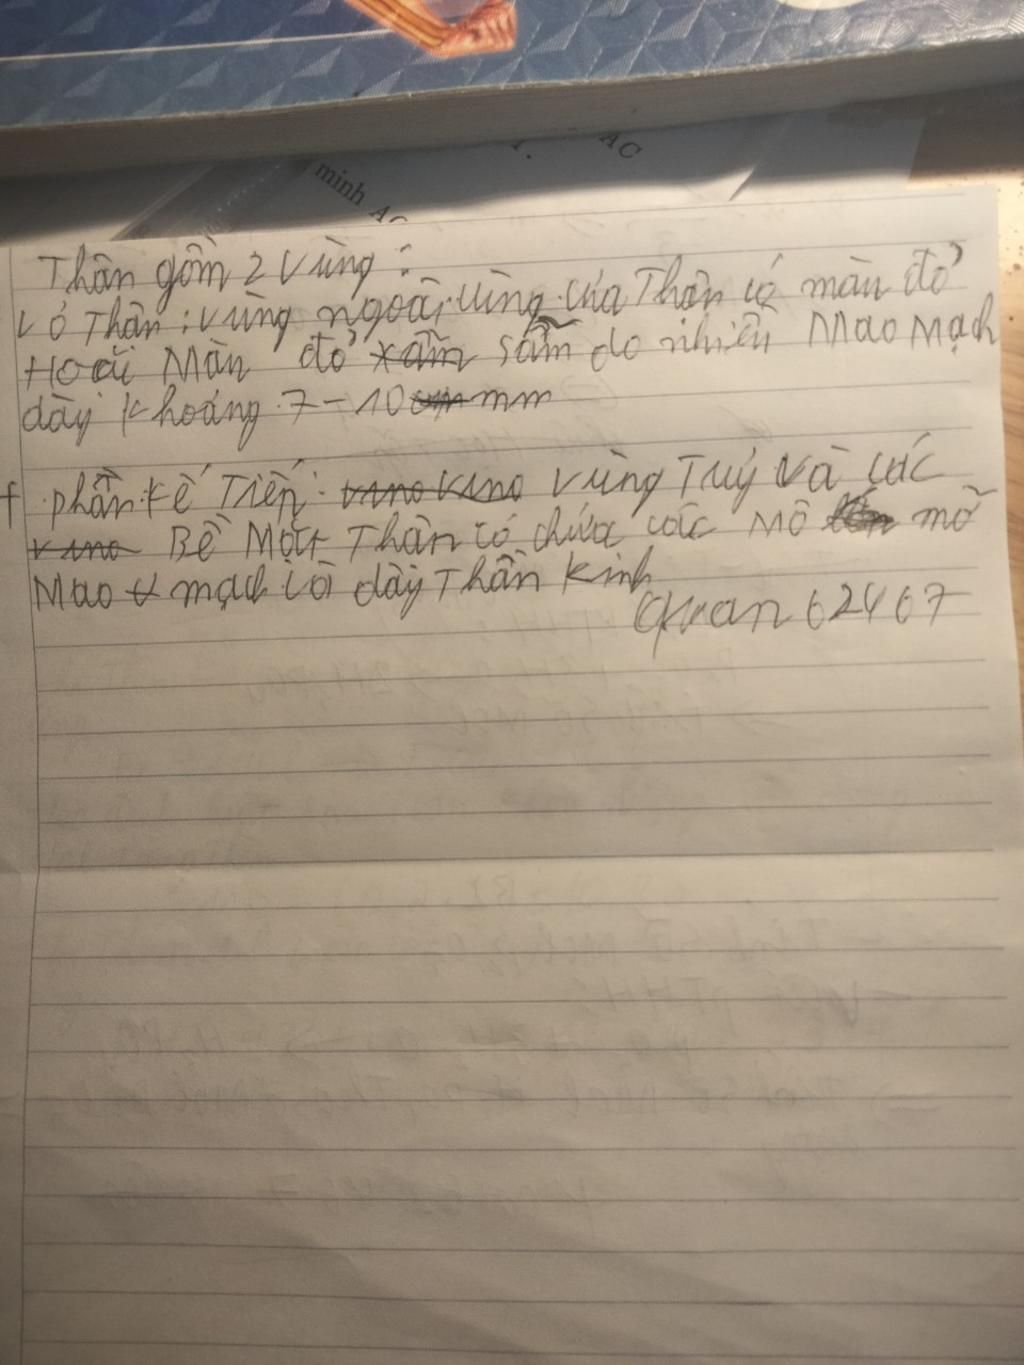 AC
minh AC
Thận gồm 2 vùng:
vỏ Thận: vùng ngoài cùng của Thận có màu đỏ
Hoặc Màu đỏ sẫm do nhiều Mao Mạch
dày khoảng 7-10 mm
+ phần kế Tiếp: vùng Tuỷ và các
Bề Mặt Thận có chứa các Mô mỡ
Mao mạch và dây Thần Kinh
Quan 62467